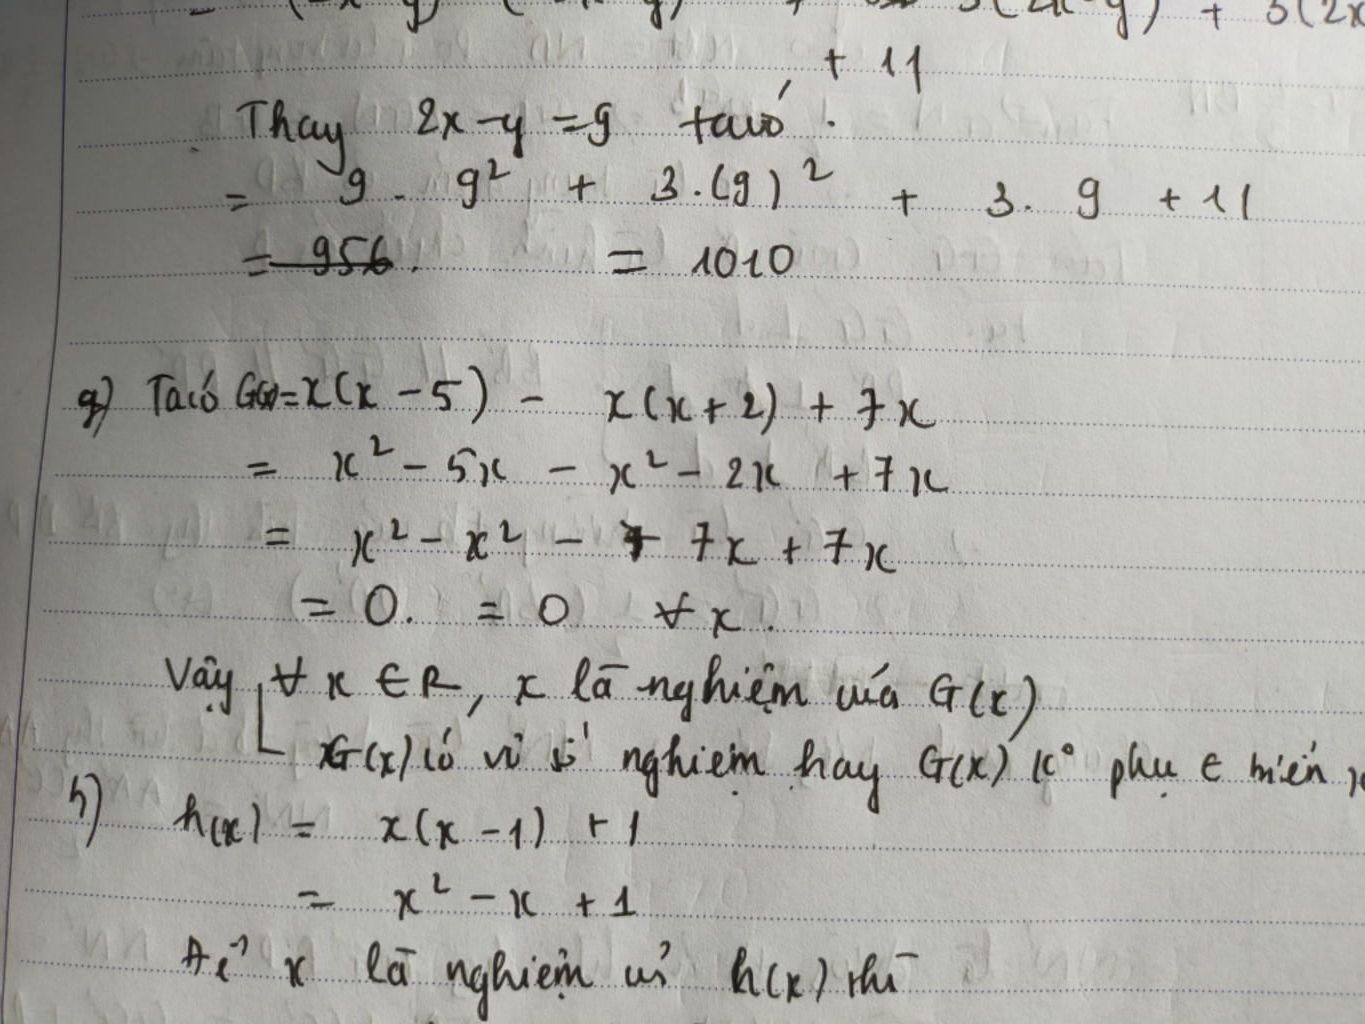 + 3(2x
+ 11
Thay 2x - y = 9 ta có
= 9 . 9² + 3.(9)² + 3. 9 + 11
= 956. = 1010
g) Ta có G(x) = x(x - 5) - x(x + 2) + 7x
= x² - 5x - x² - 2x + 7x
= x² - x² - 7x + 7x
= 0. = 0 ∀ x.
Vậy ∀ x ∈ R, x là nghiệm của G(x)
G(x) có vô số nghiệm hay G(x) k° phụ ∈ biến x
h) h(x) = x(x - 1) + 1
= x² - x + 1
Để x là nghiệm of h(x) thì